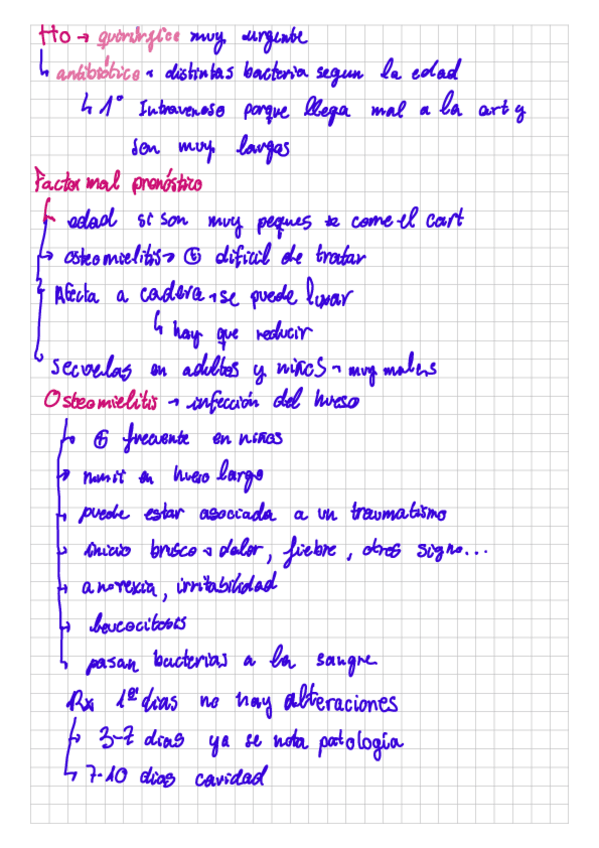 Tto → quirúrgico muy urgente
↳ antibiótico → distintas bacteria segun la edad
↳ 1º Intravenoso porque llega mal a la art y
son muy largas
Factor mal pronóstico
edad si son muy peques se come el cart
→ osteomielitis → ⊕ dificil de tratar
Afecta a cadera → se puede luxar
↳ hay que reducir
secuelas en adultos y niños → muy malas
Osteomielitis → infección del hueso
→ ⊕ frecuente en niños
→ en hueso largo
→ puede estar asociada a un traumatismo
→ inicio brusco → dolor, fiebre, otros signo...
→ anorexia, irritabilidad
→ leucocitosis
pasan bacterias a la sangre
Rx 1º dias no hay alteraciones
→ 3-7 dias ya se nota patología
↳ 7-10 dias cavidad